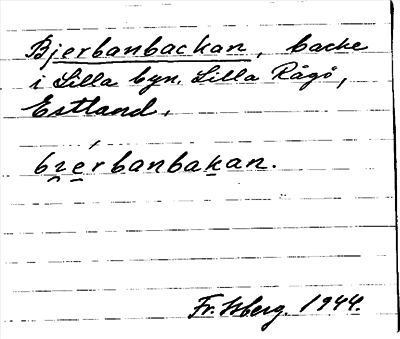 Bjerbanbackan, backe
i Lilla byn. Lilla Rågö,
Estland.
bi̯érbanbakan.
Fr. Isberg. 1944.